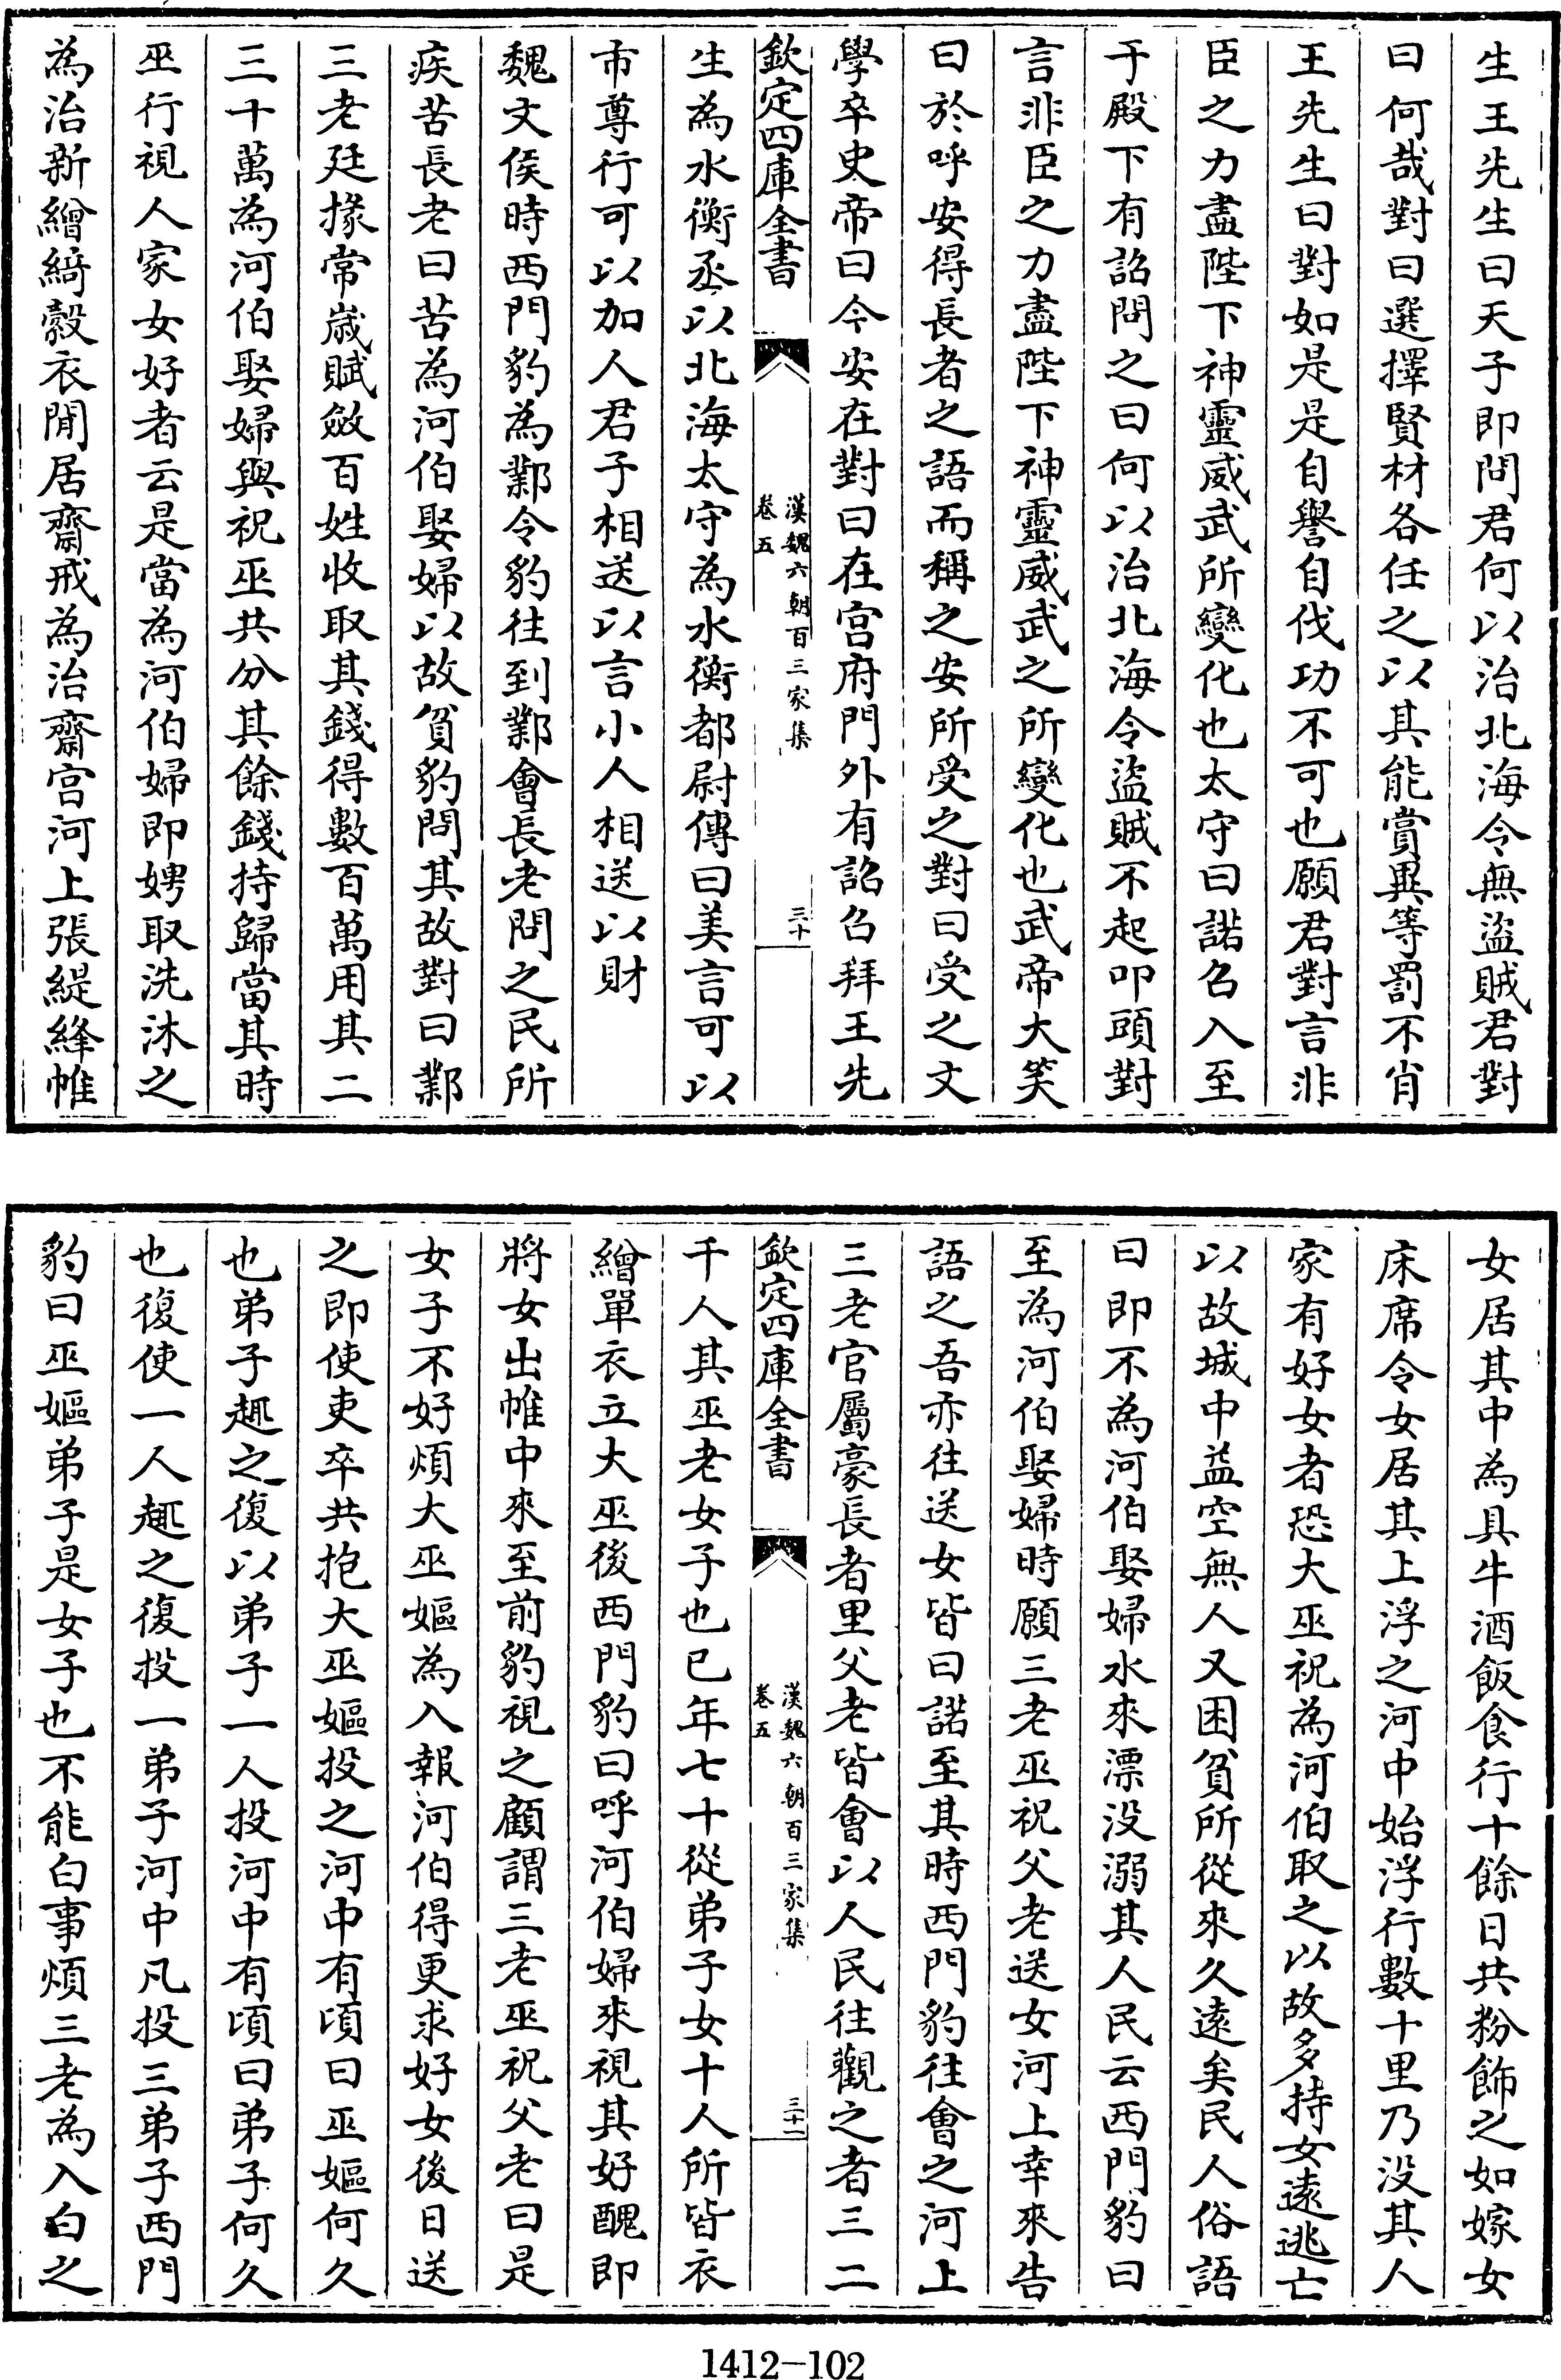 生王先生曰天子即問君何以治北海令無盜賊君對
曰何哉對曰選擇賢材各任之以其能賞異等罰不肖
王先生曰對如是是自譽自伐功不可也願君對言非
臣之力盡陛下神靈威武所變化也太守曰諾召入至
于殿下有詔問之曰何以治北海令盜賊不起叩頭對
言非臣之力盡陛下神靈威武之所變化也武帝大笑
曰於呼安得長者之語而稱之安所受之對曰受之文
學卒史帝曰今安在對曰在宫府門外有詔召拜王先
欽定四庫全書
漢魏六朝百三家集
卷五
三十
生為水衡丞以北海太守為水衡都尉傳曰美言可以
市尊行可以加人君子相送以言小人相送以財
魏文侯時西門豹為鄴令豹往到鄴會長老問之民所
疾苦長老曰苦為河伯娶婦以故貧豹問其故對曰鄴
三老廷掾常歲賦斂百姓收取其錢得數百萬用其二
三十萬為河伯娶婦與祝巫共分其餘錢持歸當其時
巫行視人家女好者云是當為河伯婦即娉取洗沐之
為治新繒綺縠衣閒居齋戒為治齋宫河上張緹絳帷
女居其中為具牛酒飯食行十餘日共粉飾之如嫁女
床席令女居其上浮之河中始浮行數十里乃没其人
家有好女者恐大巫祝為河伯取之以故多持女遠逃亡
以故城中益空無人又困貧所從來久遠矣民人俗語
曰即不為河伯娶婦水來漂没溺其人民云西門豹曰
至為河伯娶婦時願三老巫祝父老送女河上幸來告
語之吾亦往送女皆曰諾至其時西門豹往會之河上
三老官屬豪長者里父老皆會以人民往觀之者三二
欽定四庫全書
漢魏六朝百三家集
卷五
三十一
千人其巫老女子也已年七十從弟子女十人所皆衣
繒單衣立大巫後西門豹曰呼河伯婦來視其好醜即
將女出帷中來至前豹視之顧謂三老巫祝父老曰是
女子不好煩大巫嫗為入報河伯得更求好女後日送
之即使吏卒共抱大巫嫗投之河中有頃曰巫嫗何久
也弟子趣之復以弟子一人投河中有頃曰弟子何久
也復使一人趣之復投一弟子河中凡投三弟子西門
豹曰巫嫗弟子是女子也不能白事煩三老為入白之
1412—102